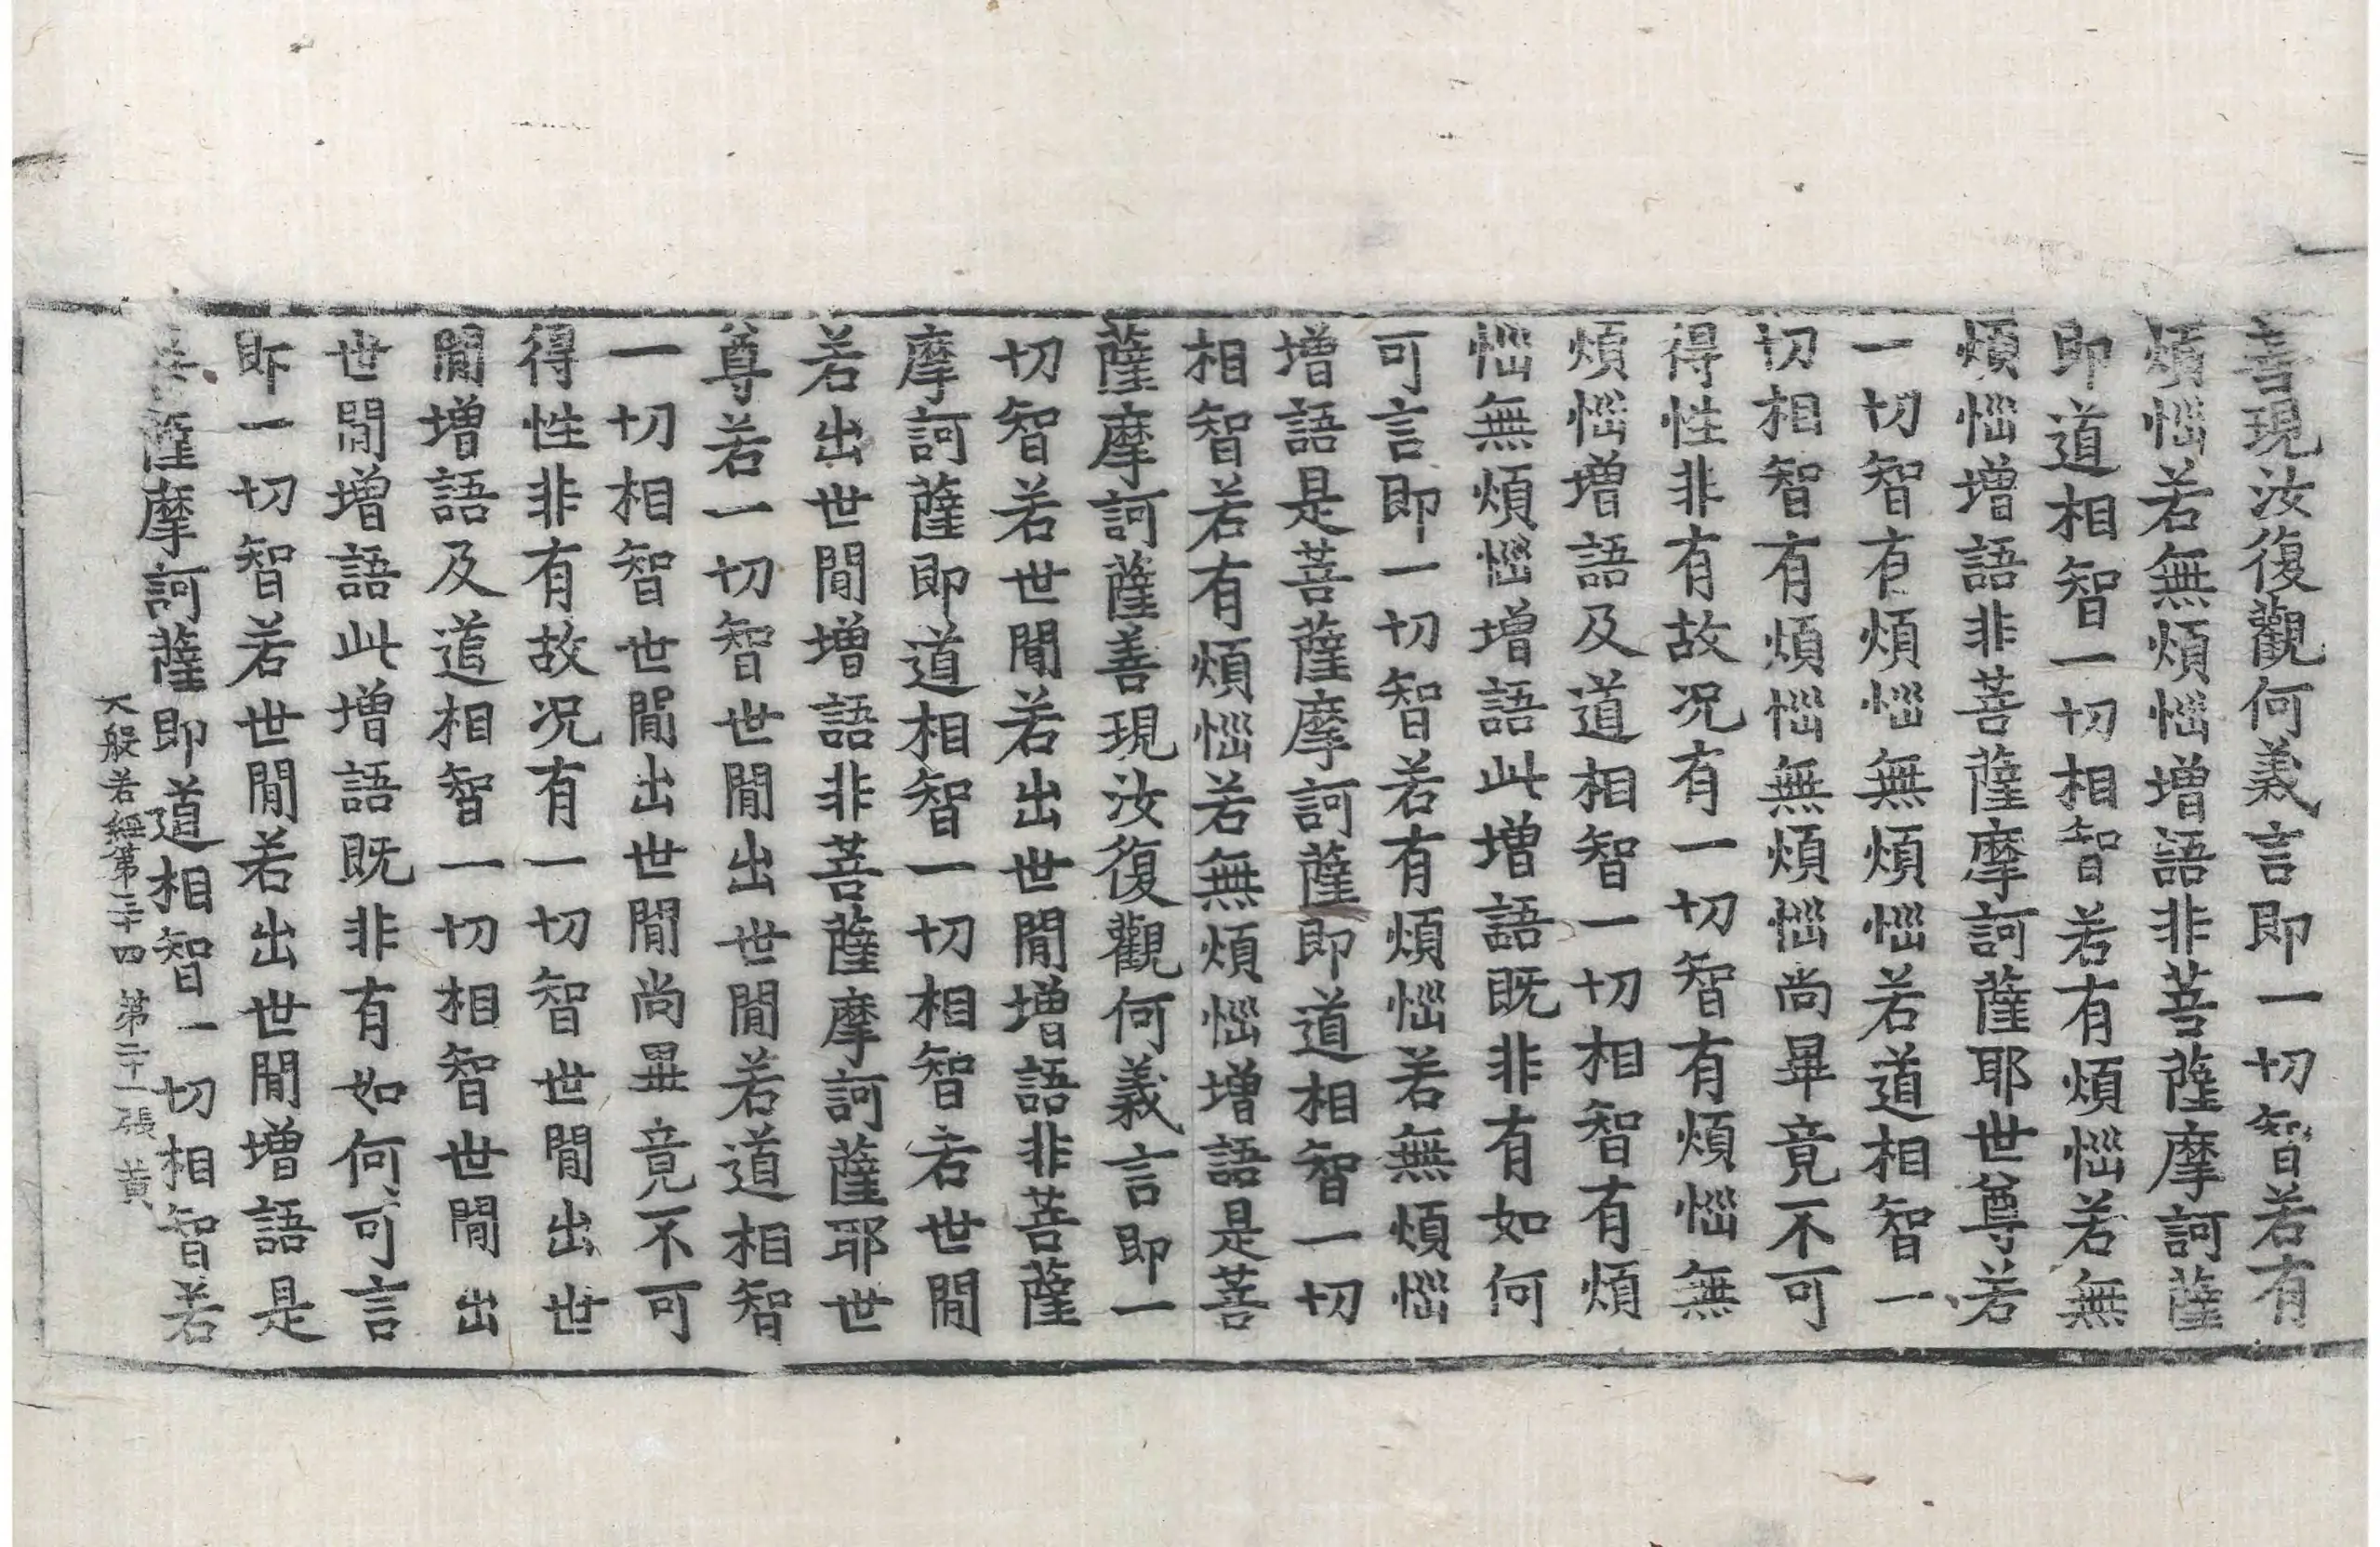 善現汝復觀何義言即一切智若有
煩惱若無煩惱增語非菩薩摩訶薩
即道相智一切相智若有煩惱若無
煩惱增語非菩薩摩訶薩耶世尊若
一切智有煩惱無煩惱若道相智一
切相智有煩惱無煩惱尚畢竟不可
得性非有故况有一切智有煩惱無
煩惱增語及道相智一切相智有煩
惱無煩惱增語此增語既非有如何
可言即一切智若有煩惱若無煩惱
增語是菩薩摩訶薩即道相智一切
相智若有煩惱若無煩惱增語是菩
薩摩訶薩善現汝復觀何義言即一
切智若世閒若出世閒增語非菩薩
摩訶薩即道相智一切相智若世閒
若出世閒增語非菩薩摩訶薩耶世
尊若一切智世閒出世閒若道相智
一切相智世閒出世閒尚畢竟不可
得性非有故况有一切智世閒出世
閒增語及道相智一切相智世閒出
世閒增語此增語既非有如何可言
即一切智若世閒若出世閒增語是
菩薩摩訶薩即道相智一切相智若
大般若經第三十四 第二十一張 黃